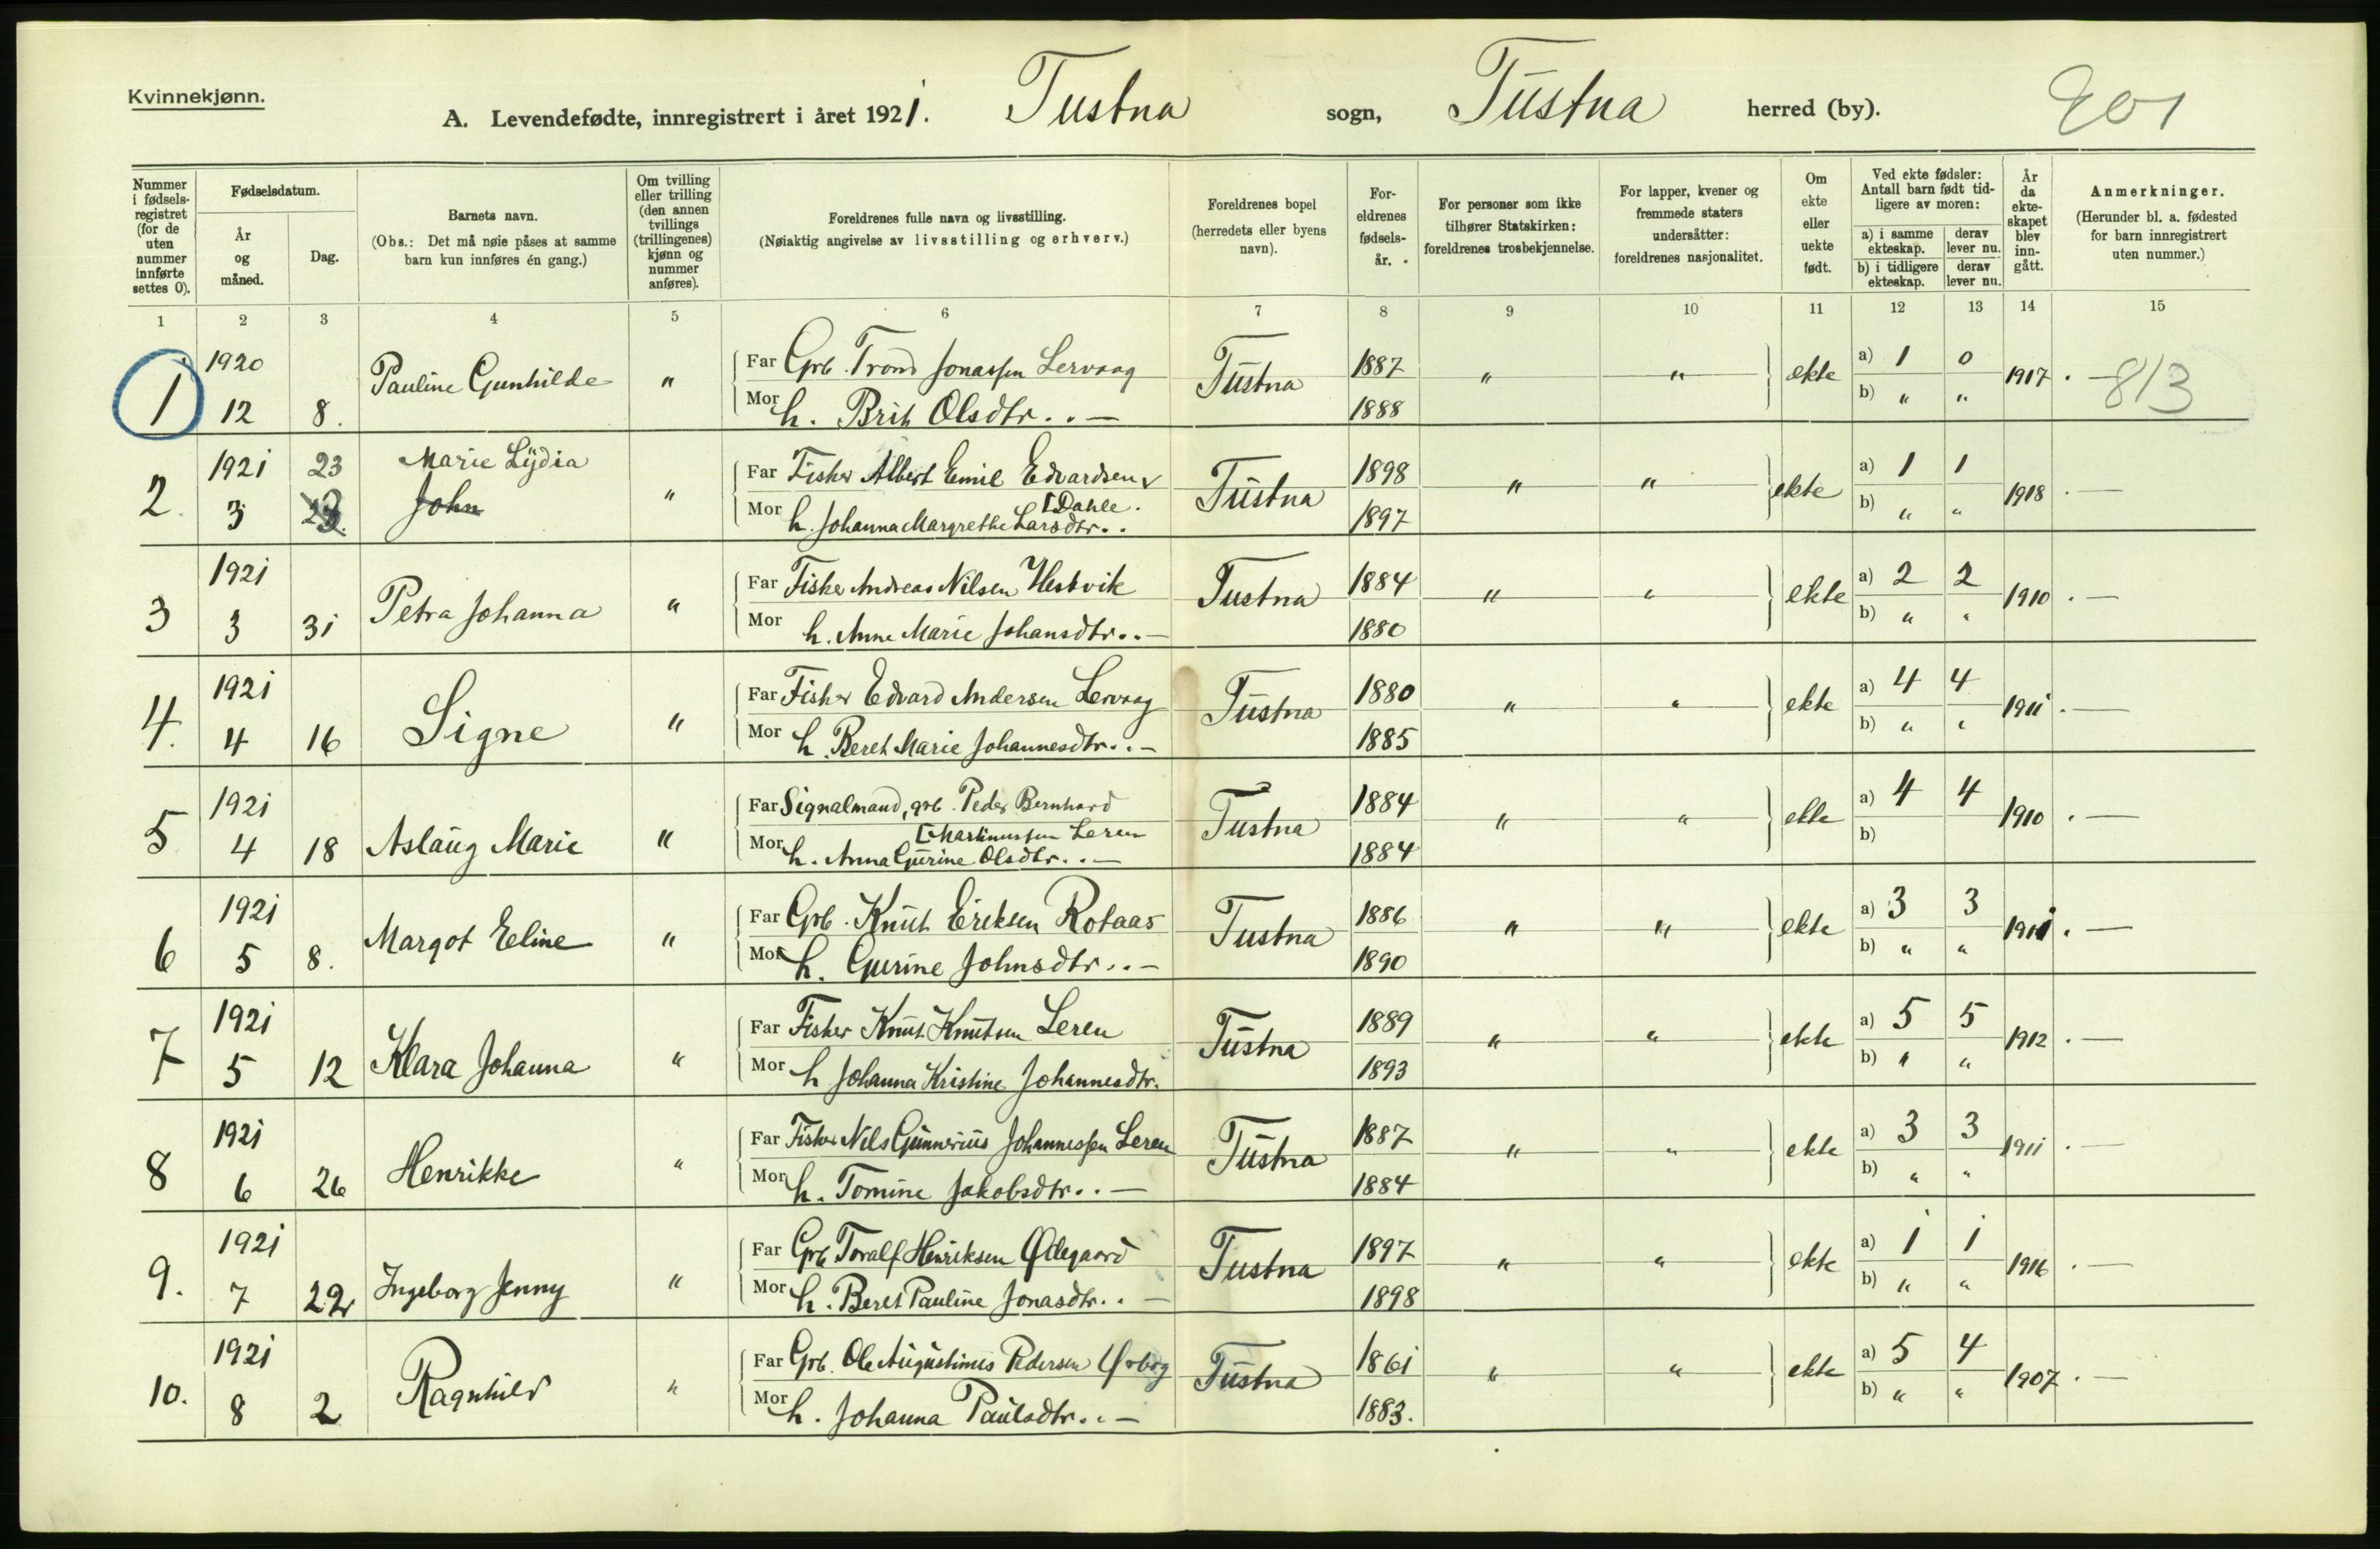 Kvinnekjønn.
A. Levendefødte, innregistrert i året 1921. Tustna sogn, Tustna herred (by). 201
Nummer i fødsels-registret (for de uten nummer innførte settes 0).
Fødselsdatum.
År og måned.
Dag.
Barnets navn.
(Obs.: Det må nøie påses at samme barn kun innføres én gang.)
Om tvilling eller trilling (den annen tvillings (trillingenes) kjønn og nummer anføres).
Foreldrenes fulle navn og livsstilling.
(Nøiaktig angivelse av livsstilling og erhverv.)
Foreldrenes bopel (herredets eller byens navn).
For-eldrenes fødsels-år.
For personer som ikke tilhører Statskirken: foreldrenes trosbekjennelse.
For lapper, kvener og fremmede staters undersåtter: foreldrenes nasjonalitet.
Om ekte eller uekte født.
Ved ekte fødsler: Antall barn født tid-ligere av moren:
a) i samme ekteskap.
derav lever nu.
b) i tidligere ekteskap.
derav lever nu.
År da ekte-skapet blev inn-gått.
Anmerkninger.
(Herunder bl. a. fødested for barn innregistrert uten nummer.)
1 2 3 4 5 6 7 8 9 10 11 12 13 14 15
1 1920 12 8. Pauline Gunhilde " Far Grb. Trond Jonassen Lervaag Tustna 1887 " " ekte a) 1 0 1917. — 813
Mor h. Brit Olsdtr. . — 1888 b) " "
2. 1921 3 23 23. Marie Lydia John " Far Fisker Albert Emil Edvardsen Tustna 1898 " " ekte a) 1 1 1918 . —
[Dahle.
Mor h. Johanna Margrethe Larsdtr. . 1897 b) " "
3 1921 3 31 Petra Johanna " Far Fisker Andreas Nilsen Hestvik Tustna 1884 " " ekte a) 2 2 1910 . —
Mor h. Anne Marie Johansdtr. . — 1880 b) " "
4. 1921 4 16 Signe " Far Fisker Edvard Andersen Lervaag Tustna 1880 " " ekte a) 4 4 1911 . —
Mor h. Beret Marie Johannesdtr. . — 1885 b) " "
5 1921 4 18 Aslaug Marie " Far Signalmand, grb. Peder Bernhard Tustna 1884 " " ekte a) 4 4 1910 . —
[Martinussen Leren
Mor h. Anna Gurine Olsdtr. . — 1884 b)
6 1921 5 8. Margot Eline " Far Grb. Knut Eriksen Rotaas Tustna 1886 " " ekte a) 3 3 1911 . —
Mor h. Gurine Johnsdtr. . — 1890 b) " "
7 1921 5 12 Klara Johanna " Far Fisker Knut Knutsen Leren Tustna 1889 " " ekte a) 5 5 1912 . —
Mor h Johanna Kristine Johannesdtr. 1893 b) " "
8 1921 6 26 Henrikke " Far Fisker Nils Gunnerius Johannessen Leren Tustna 1887 " " ekte a) 3 3 1911 . —
Mor h. Tomine Jakobsdtr. . — 1884 b) " "
9. 1921 7 22 Ingeborg Jenny " Far Grb Toralf Henriksen Ødegaard Tustna 1897 " " ekte a) 1 1 1916 . —
Mor h. Beret Pauline Jonasdtr. . — 1898 b) " "
10. 1921 8 2 Ragnhild " Far Grb. Ole Augustinus Pedersen Tustna 1861 " " ekte a) 5 4 1907 . —
Mor h. Johanna Paulsdtr. . — 1883. b) " "